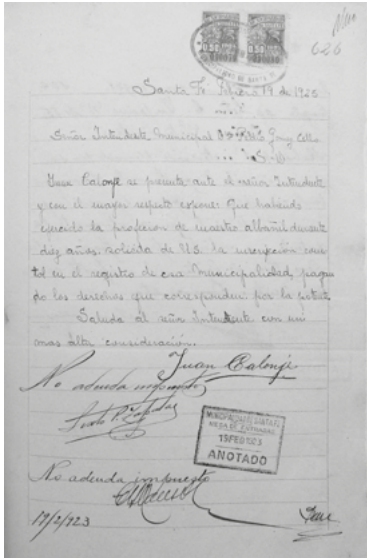 626
0.50 0.50
Santa Fe Febrero 19 de 1923
Señor Intendente Municipal
S. D.
Juan Calonje se presenta ante el señor Intendente
y con el mayor respeto expone: Que habiendo
ejercido la profesion de maestro albañil durante
diez años, solicita de U.S. la inscripción como
tal en el registro de esa Municipalidad, pagan
do los derechos que corresponden por la
Saluda al señor Intendente con mi
mas alta consideración.
Juan Calonje
No adeuda impuesto
MUNICIPALIDAD DE SANTA FE
MESA DE ENTRADAS
19 FEB 1923
ANOTADO
No adeuda impuesto
19/2/923